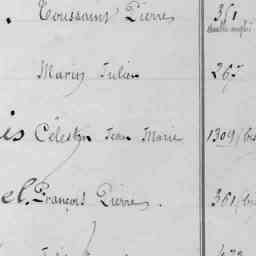 Toussaint Pierre 351
Marius Julien 267
is Célestin Jean Marie 1309 (bis
el, François Pierre. 361 (bis